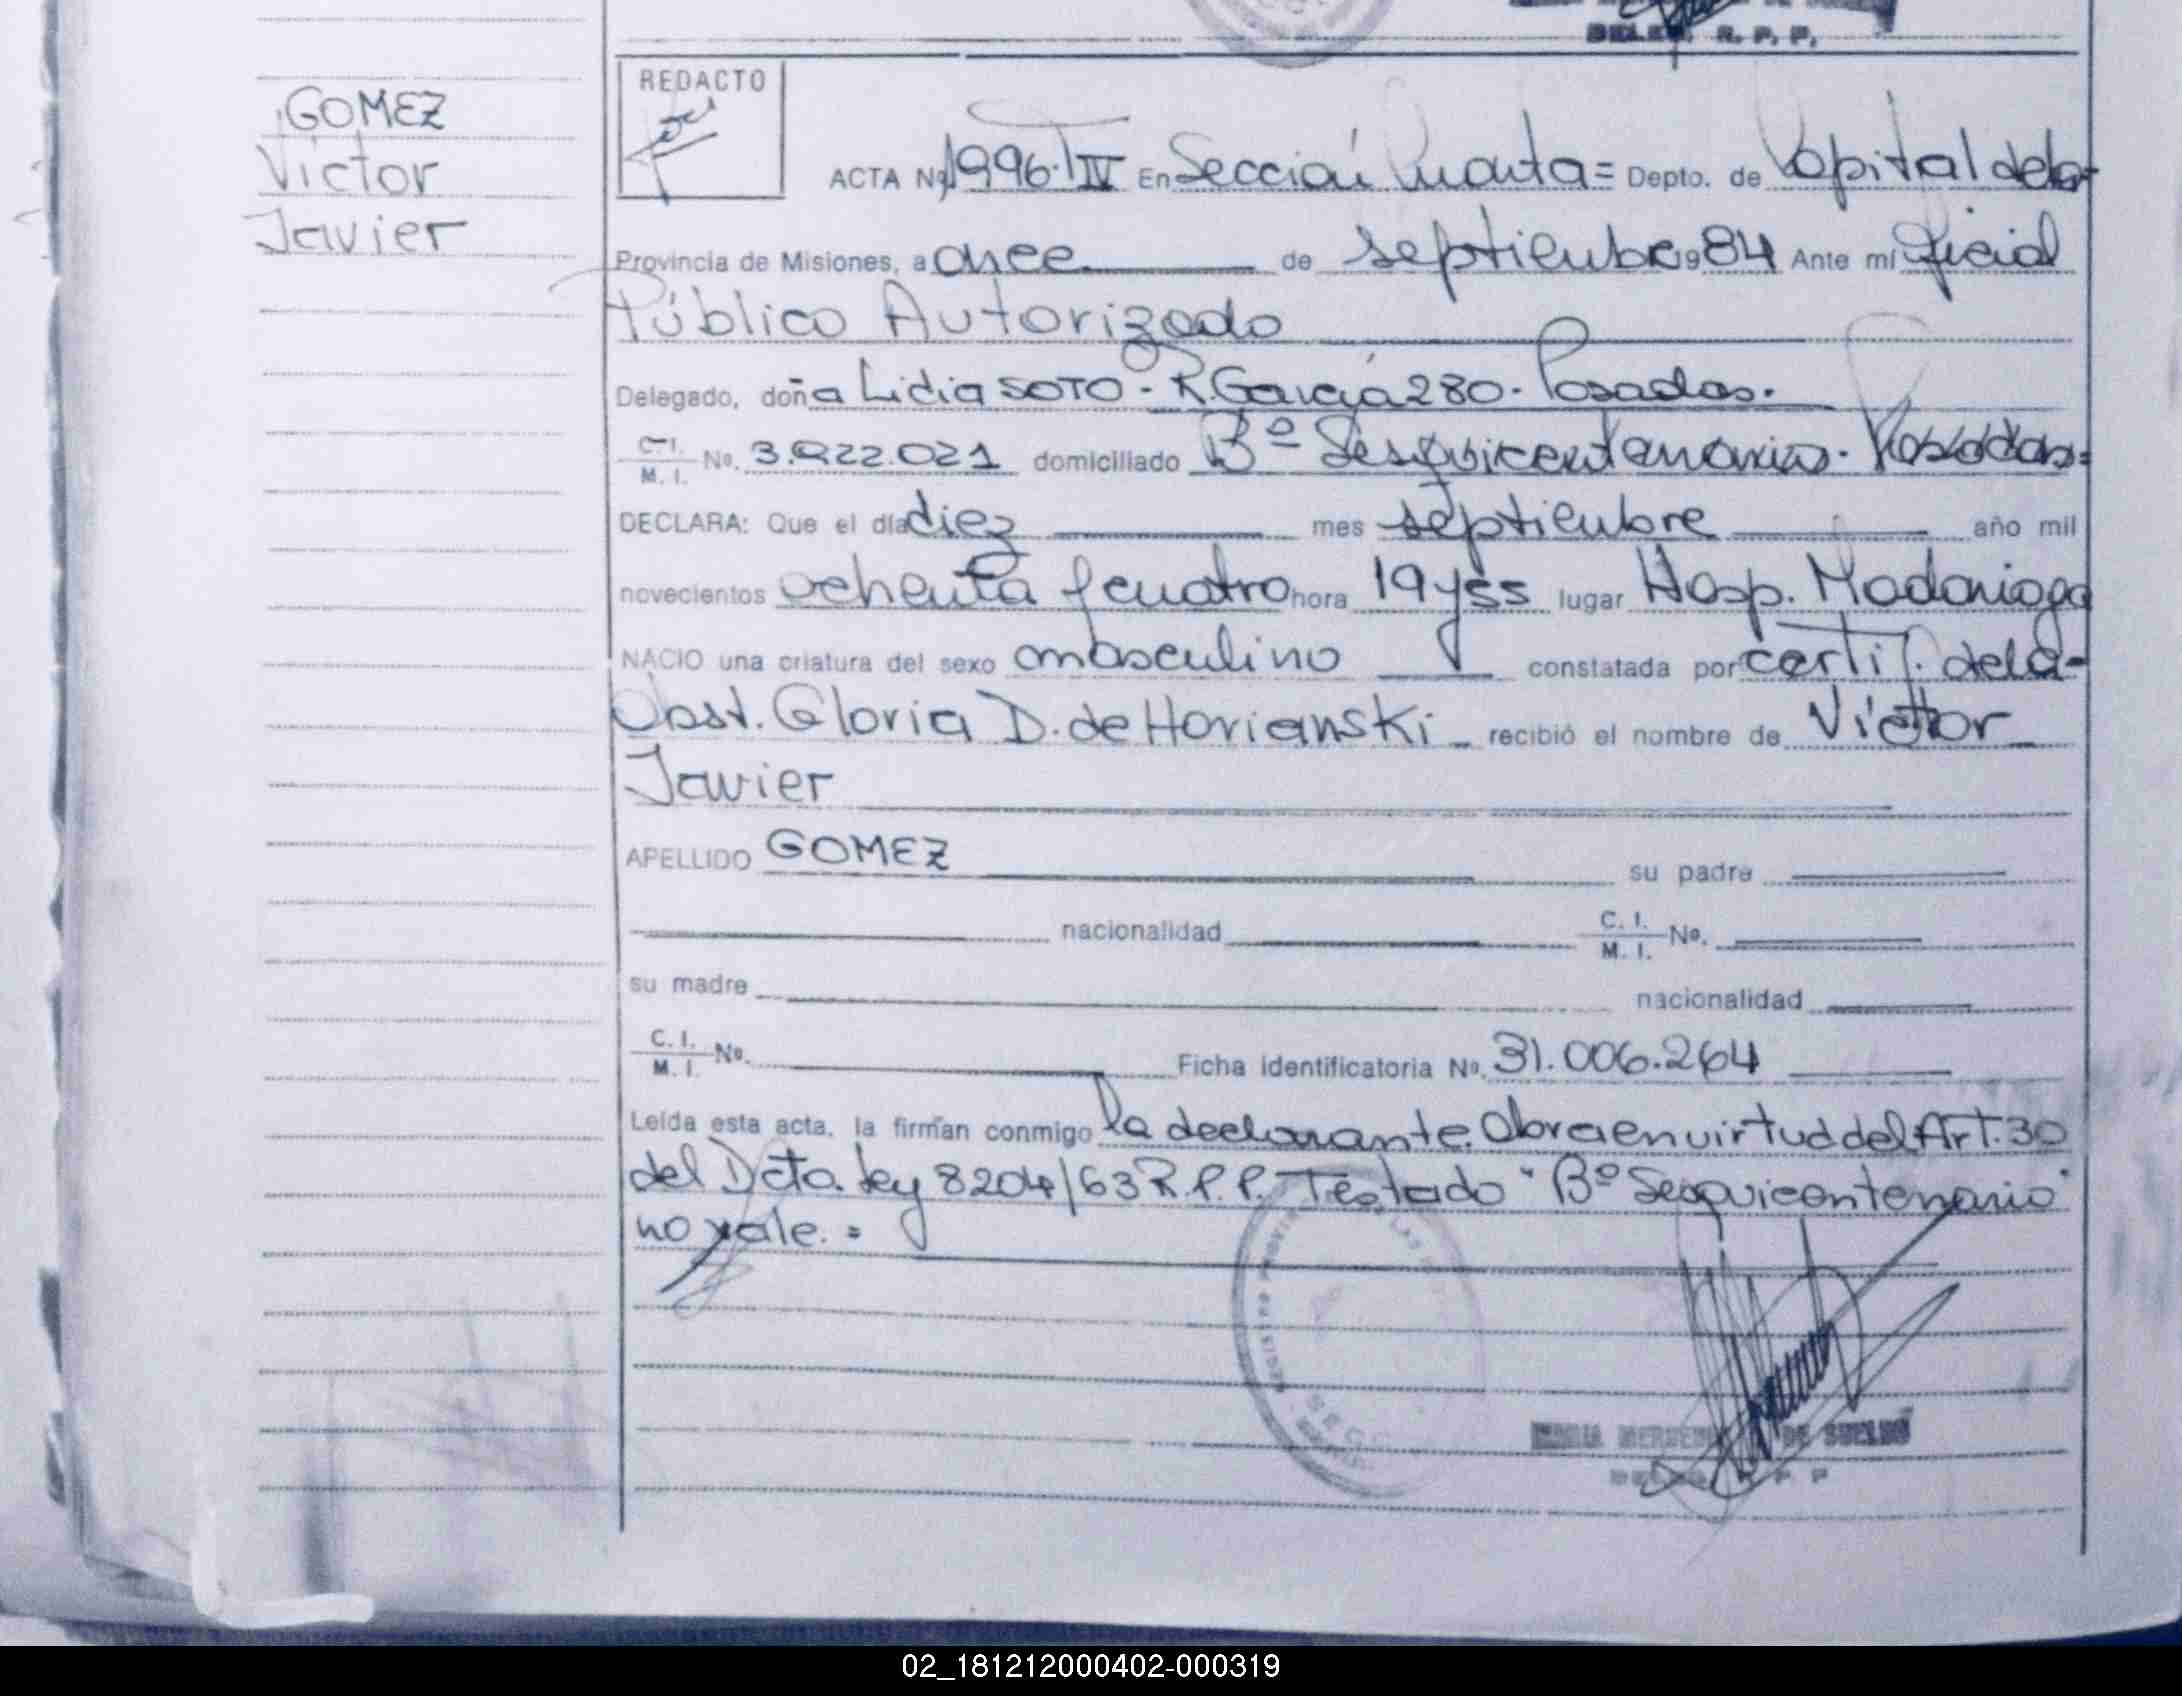 DELEG. R. P. P.
REDACTO
GOMEZ
Victor
Javier
ACTA Nº 1996·T IV En Sección Cuarta= Depto. de Capital de la-
Provincia de Misiones, a once de septiembre 1984 Ante mí Oficial
Público Autorizado
Delegado, doña Lidia SOTO - R. García 280 - Posadas.
C. I. / M. I. Nº. 3.922.021 domiciliado Bº Sesquicentenario. Posadas=
DECLARA: Que el día diez mes septiembre año mil
novecientos ochenta y cuatro hora 19 y 55 lugar Hosp. Madariaga
NACIO una criatura del sexo masculino constatada por certif. de la-
Obst. Gloria D. de Horianski recibió el nombre de Victor
Javier
APELLIDO GOMEZ su padre
nacionalidad C. I. / M. I. Nº.
su madre nacionalidad
C. I. / M. I. Nº. Ficha identificatoria Nº. 31.006.264
Leída esta acta, la firman conmigo la declarante. Obra en virtud del Art. 30
del Dcto. Ley 8204/63 R.P.P. Testado "Bº Sesquicentenario"
no vale. =
DE SUELDO
02_181212000402-000319